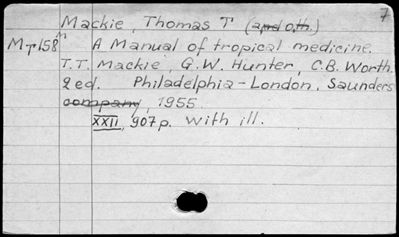 7
Mackie, Thomas T (and oth.)
Mp158m A Manual of tropical medicine.
T.T. Mackie, G.W. Hunter, C.B. Worth.
2 ed. Philadelphia-London, Saunders
company, 1955.
XXII, 907p. With ill.